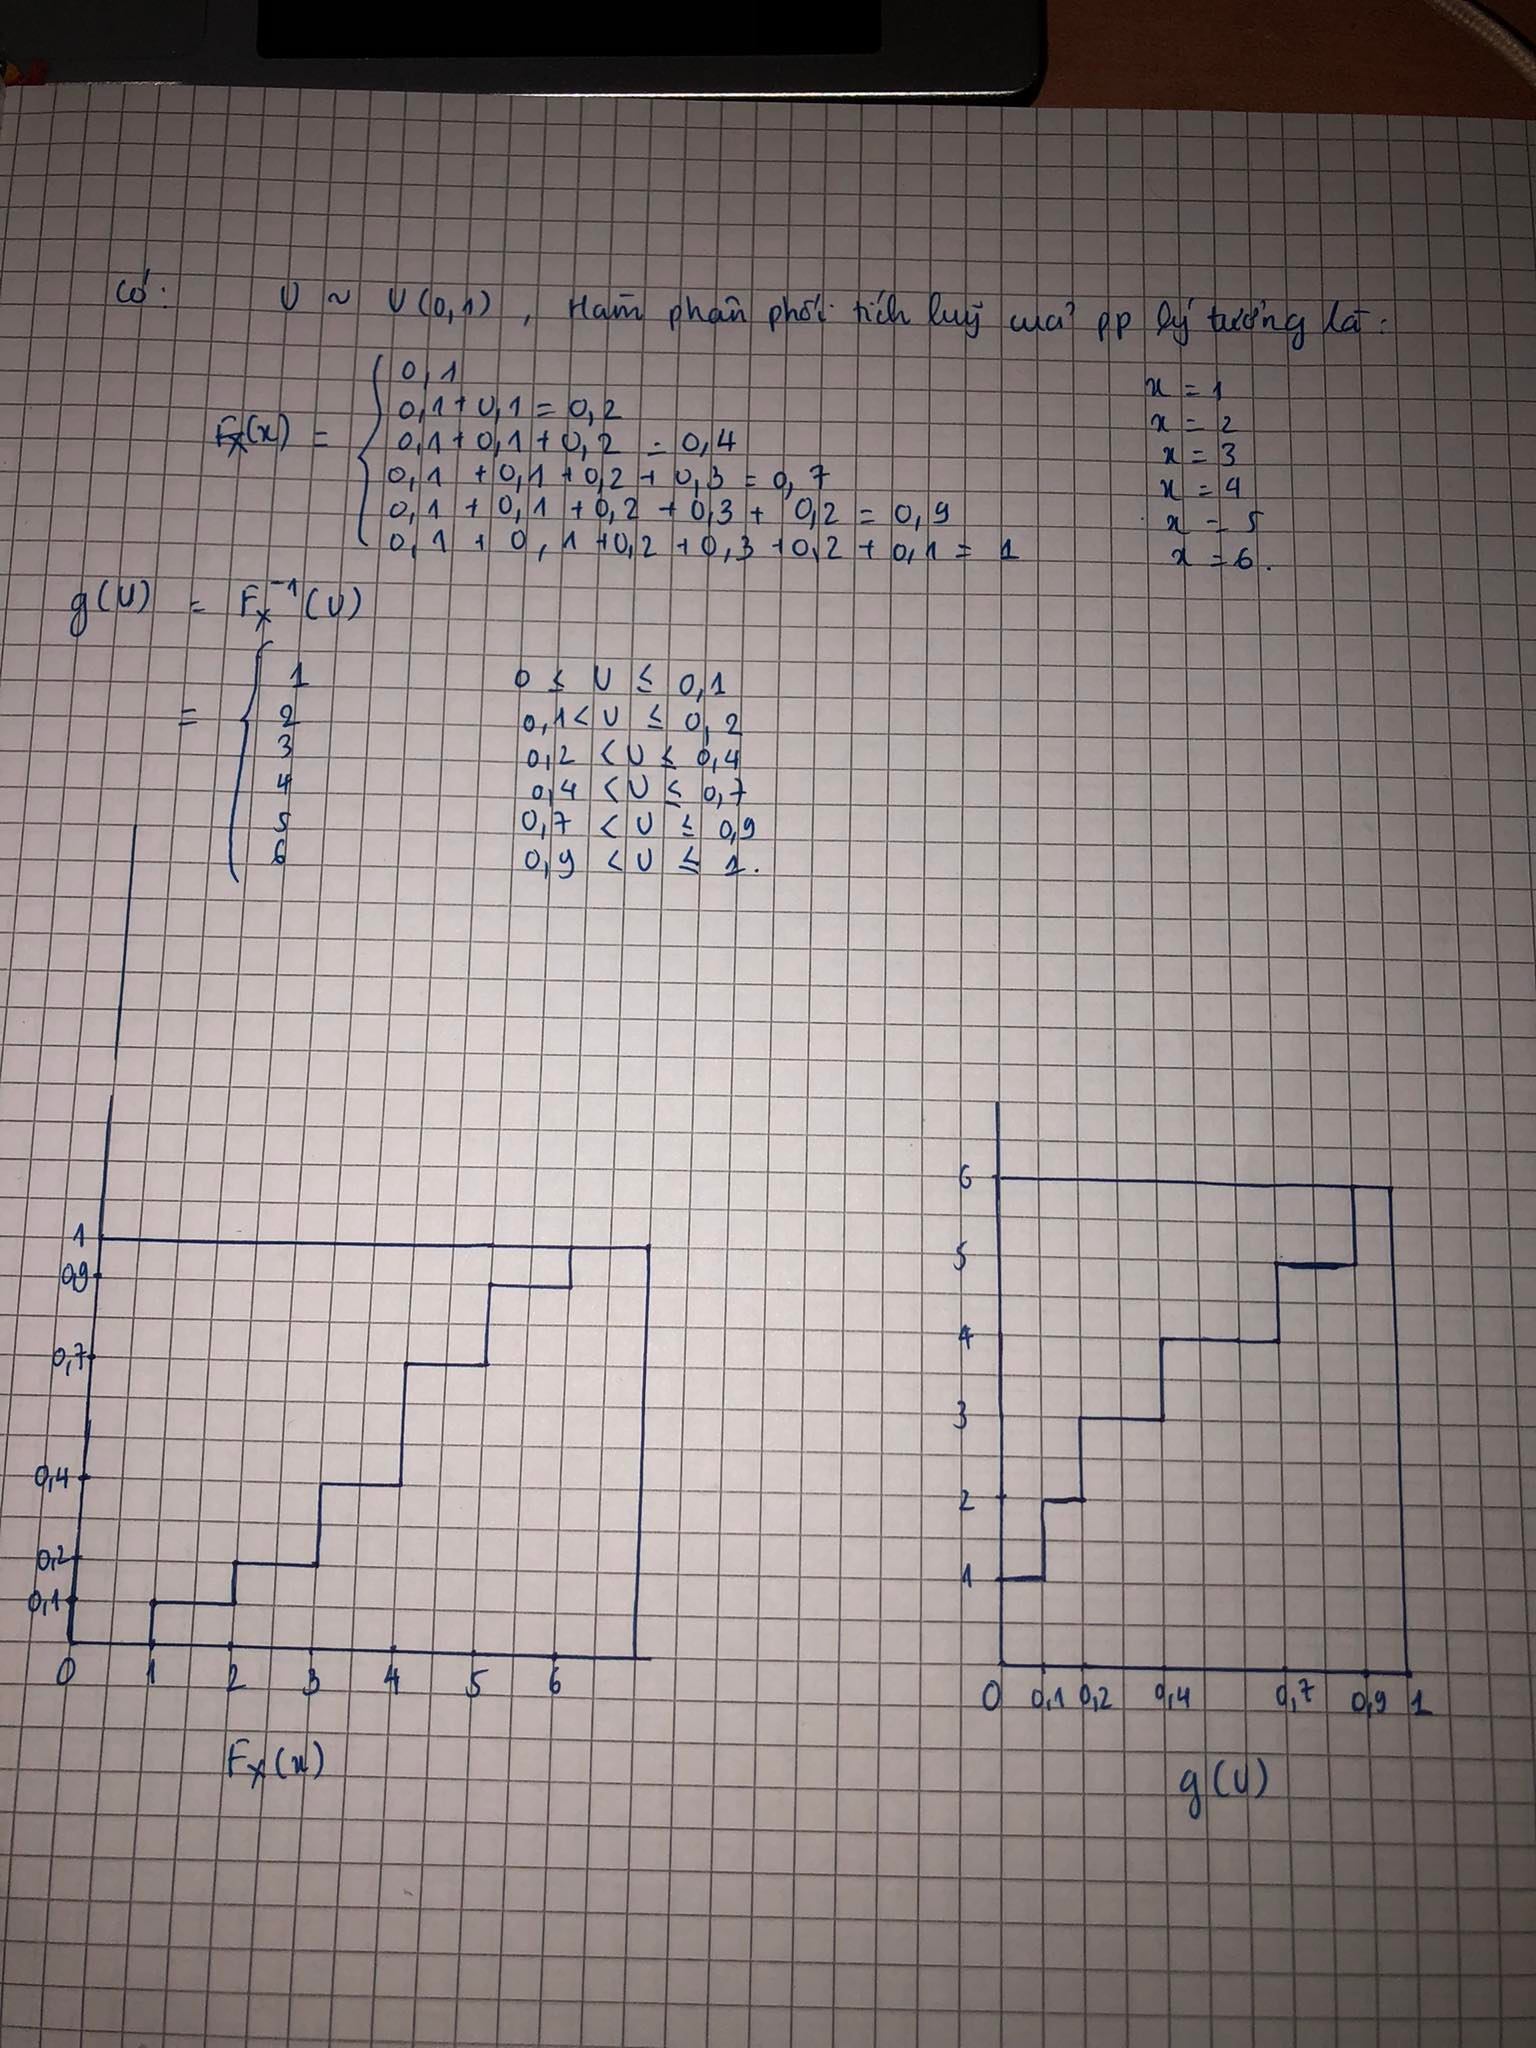 Có: U ~ U(0,1), Hàm phân phối tích luỹ của pp lý tưởng là:
0,1 x = 1
0,1 + 0,1 = 0,2 x = 2
Fx(x) = 0,1 + 0,1 + 0,2 = 0,4 x = 3
0,1 + 0,1 + 0,2 + 0,3 = 0,7 x = 4
0,1 + 0,1 + 0,2 + 0,3 + 0,2 = 0,9 x = 5
0,1 + 0,1 + 0,2 + 0,3 + 0,2 + 0,1 = 1 x = 6.
g(U) = Fx⁻¹(U)
1 0 ≤ U ≤ 0,1
= 2 0,1 < U ≤ 0,2
3 0,2 < U ≤ 0,4
4 0,4 < U ≤ 0,7
5 0,7 < U ≤ 0,9
6 0,9 < U ≤ 1.
1
0,9
0,7
0,4
0,2
0,1
0 1 2 3 4 5 6
Fx(x)
6
5
4
3
2
1
0 0,1 0,2 0,4 0,7 0,9 1
g(U)